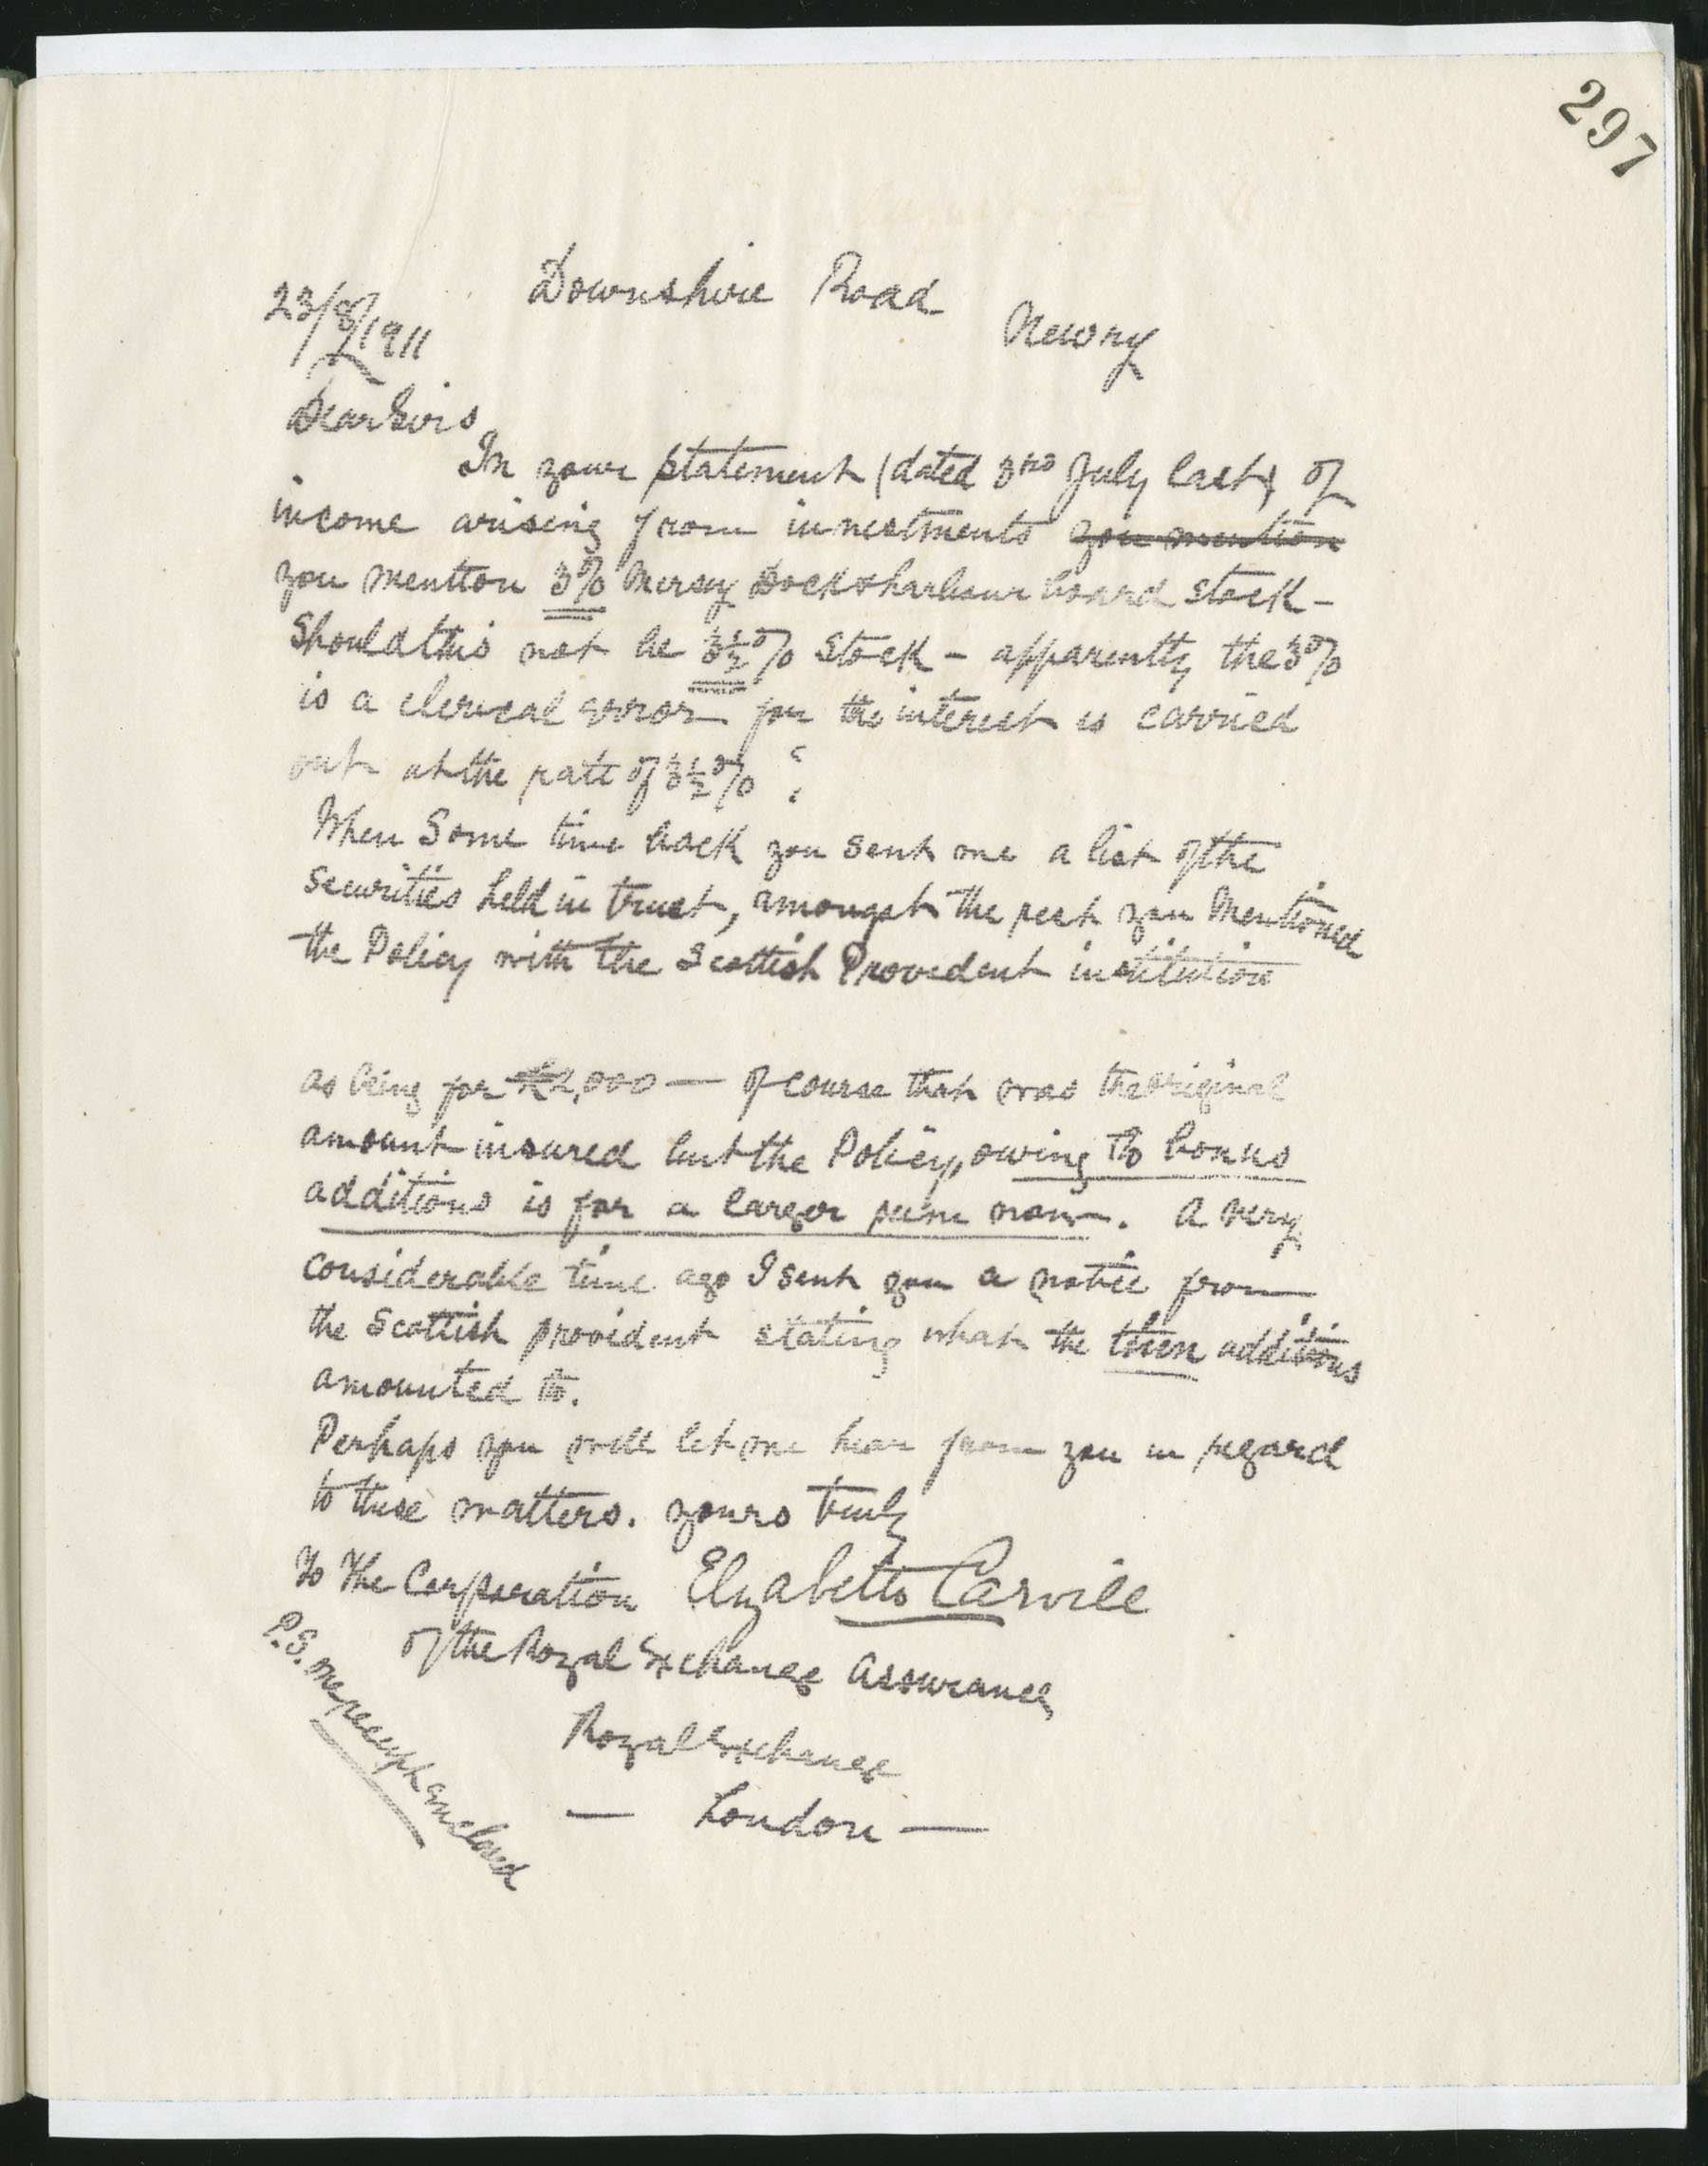 297
Downshire Road
Newry
23/8/1911
Dear Sirs,
In your statement (dated 3rd July last) of
income arising from investments you mention
you mention 3% Mersey Dock & harbour board stock -
Should this not be 3½% Stock - apparently the 3%
is a clerical error for the interest is carried
out at the rate of 3½% ?
When Some time back you sent me a list of the
securities held in trust, amongst the rest you mentioned
the Policy with the Scottish Provident institution
as being for £2,000 — of course that was the original
amount insured but the Policy, owing to bonus
additions is for a larger sum now. A very
considerable time ago I sent you a notice from
the Scottish provident stating what the then additions
amounted to.
Perhaps you will let me hear from you in regard
to these matters. yours truly
Elizabeth Carvill
To The Corporation
of the Royal Exchange Assurance
Royal Exchange
— London —
P.S. one receipt enclosed